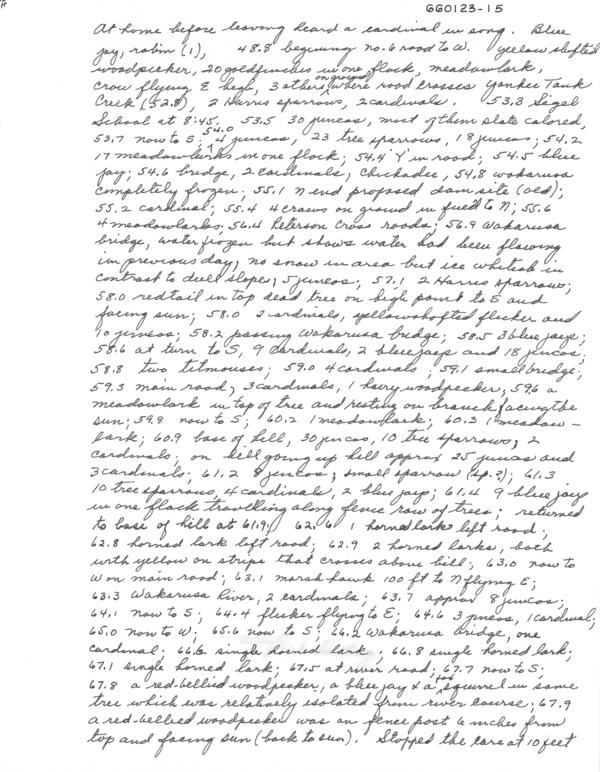 660123-15
At home before leaving heard a cardinal in song. Blue
jay, robin (1), 48.8 beginning no. 6 road to W. yellow shafted
woodpecker, 20 goldfinches in one flock, meadowlark,
crow flying E high, 3 others on ground where road crosses Yankee Tank
Creek (52.8), 2 Harris sparrows, 2 cardinals. 53.3 Sigel
School at 8:45, 53.5 30 juncos, most of them slate colored,
53.7 now to S; 54.0 4 juncos, 23 tree sparrows, 18 juncos; 54.2
17 meadowlarks in one flock; 54.4 Y in road; 54.5 blue
jay; 54.6 bridge, 2 cardinals, chickadee, 54.8 wakarusa
completely frozen; 55.1 N end proposed dam site (old);
55.2 cardinal; 55.4 4 crows on ground in field to N; 55.6
4 meadowlarks; 56.4 Peterson Cross roads; 56.9 Wakarusa
bridge, water frozen but shows water had been flowing
in previous day; no snow in area but ice whitish in
contrast to dull slope; 5 juncos; 57.1 2 Harris sparrows;
58.0 redtail in top dead tree on high point to S and
facing sun; 58.0 2 cardinals, yellowshafted flicker and
10 juncos; 58.2 passing Wakarusa bridge; 58.5 3 blue jays;
58.6 at turn to S, 9 cardinals, 2 blue jays and 18 juncos;
58.8 two titmouses; 59.0 4 cardinals; 59.1 small bridge;
59.3 main road; 3 cardinals, 1 hairy woodpecker; 59.6 a
meadowlark in top of tree and resting on branch facing the
sun; 59.8 now to S; 60.2 1 meadowlark; 60.3 1 meadow-
lark; 60.9 base of hill, 30 juncos, 10 tree sparrows, 2
cardinals; on hill going up hill approx 25 juncos and
3 cardinals; 61.2 8 juncos; small sparrow (sp.?); 61.3
10 tree sparrows, 4 cardinals, 2 blue jays; 61.4 9 blue jays
in one flock travelling along fence row of trees; returned
to base of hill at 61.9; 62.6 1 horned lark left road;
62.8 horned lark left road; 62.9 2 horned larks, both
with yellow on stripe that crosses above bill; 63.0 now to
W on main road; 63.1 marsh hawk 100 ft to N flying E;
63.3 Wakarusa River, 2 cardinals; 63.7 approx 8 juncos;
64.1 now to S; 64.4 flicker flying to E; 64.6 3 juncos, 1 cardinal;
65.0 now to W; 65.6 now to S; 66.2 Wakarusa bridge, one
cardinal; 66.6 single horned lark; 66.8 single horned lark;
67.1 single horned lark; 67.5 at river road; 67.7 now to S;
67.8 a red-bellied woodpecker, a blue jay & a fox squirrel in same
tree which was relatively isolated from river course; 67.9
a red-bellied woodpecker was on fence post 6 inches from
top and facing sun (back to sun). Stopped the car at 10 feet